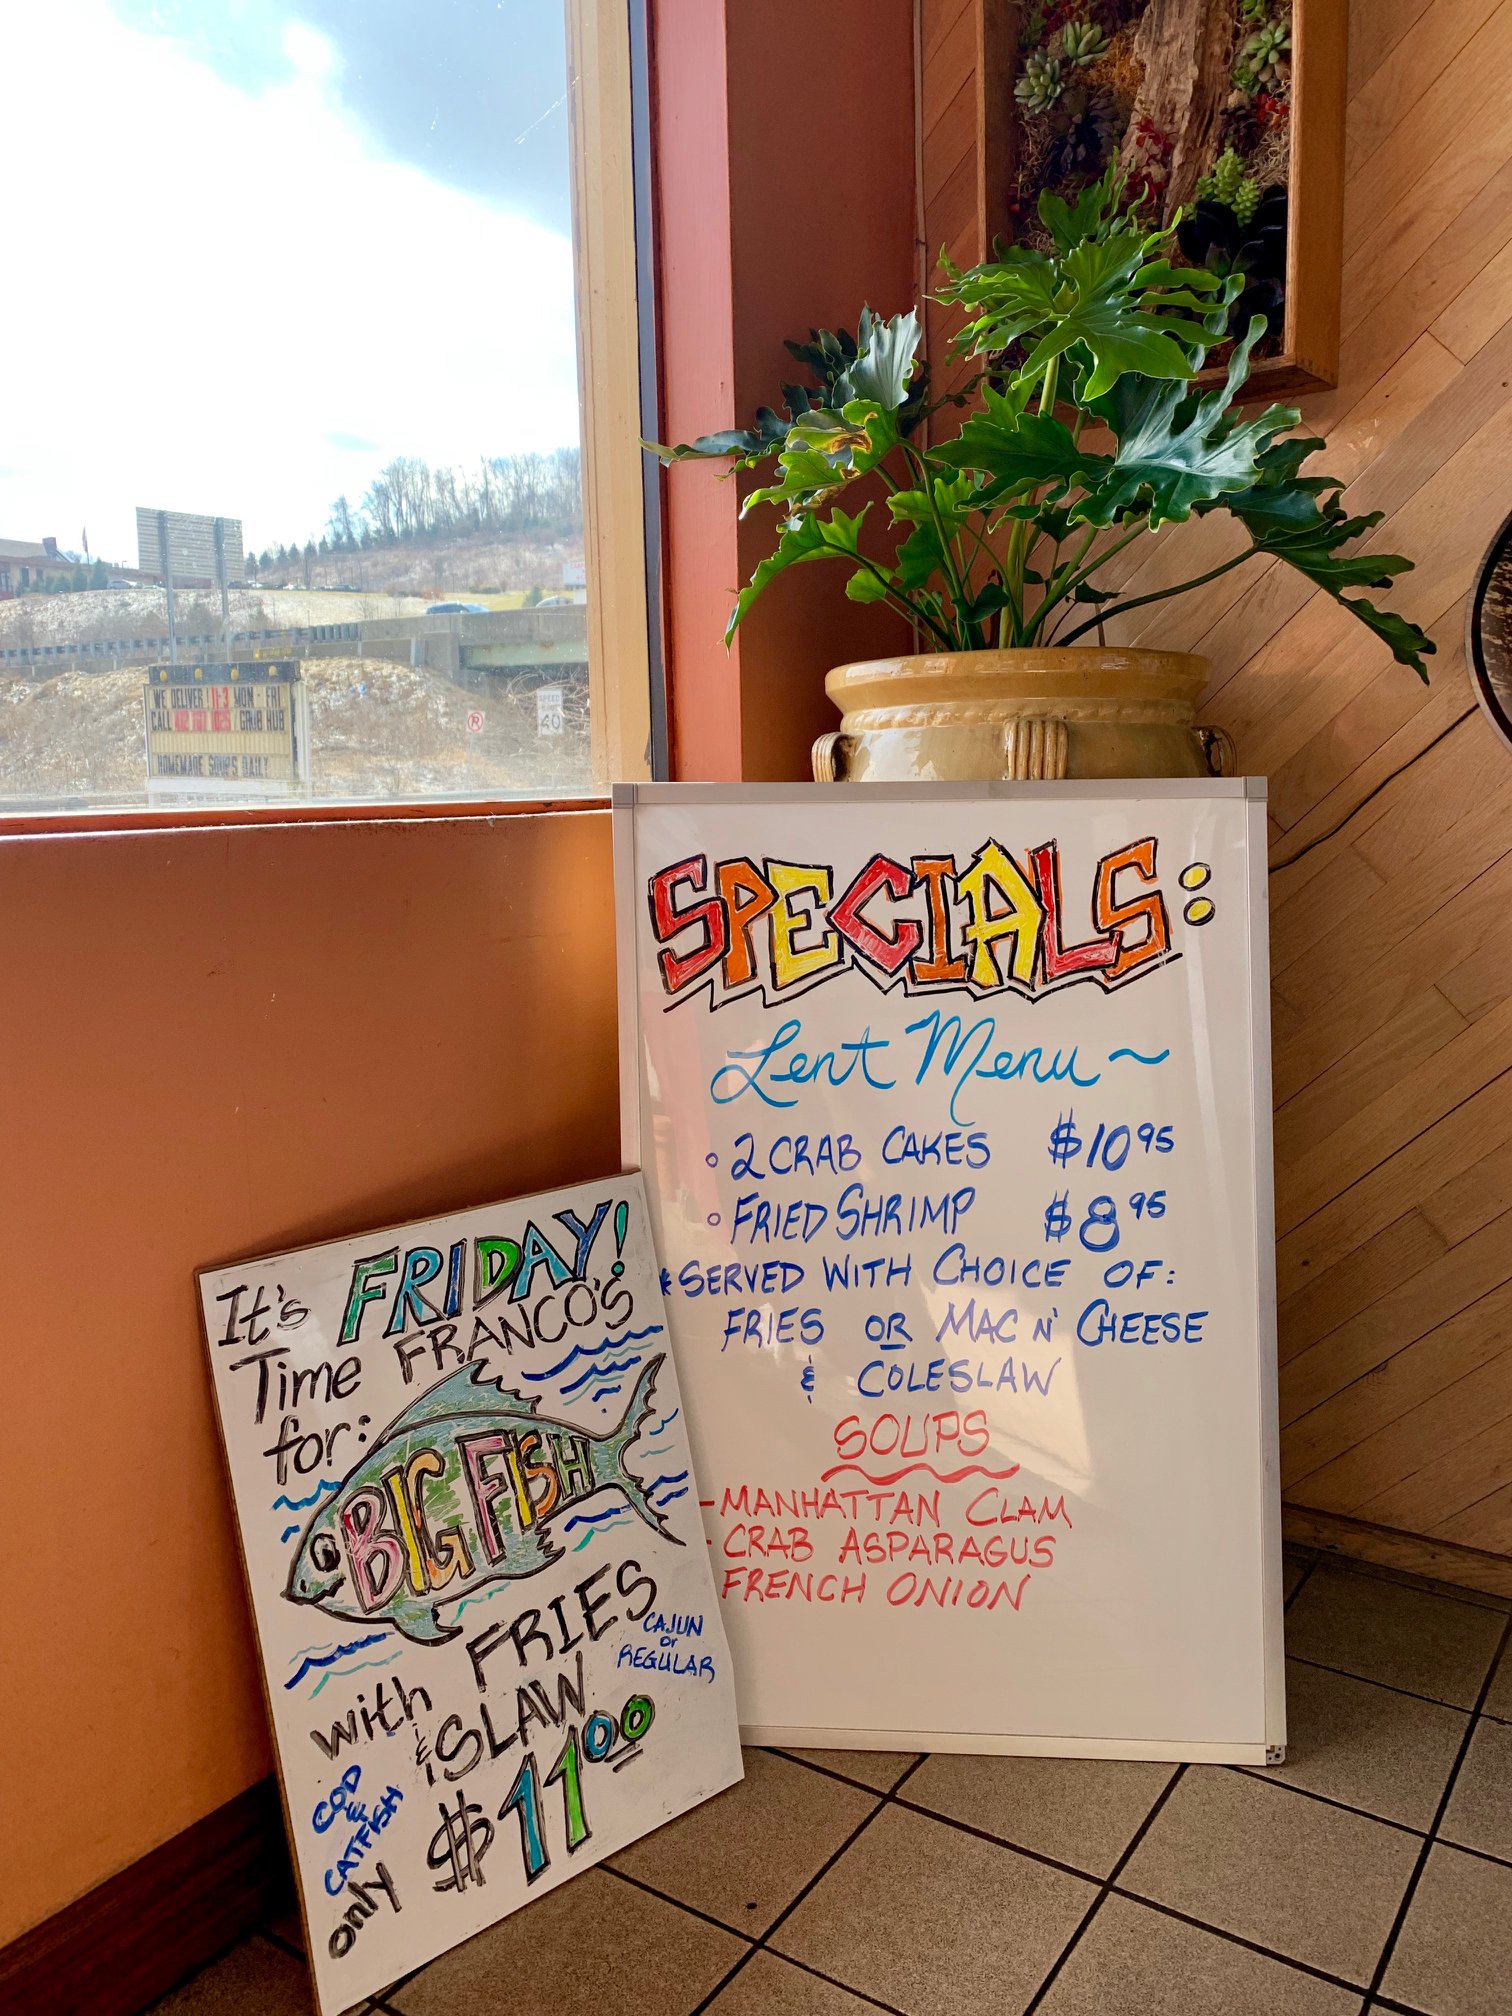 WE DELIVER 11-3 MON - FRI
CALL GRUB HUB
HOMEMADE SOUPS DAILY
SPEED
40
SPECIALS:
Lent Menu ~
○ 2 CRAB CAKES $10 95
○ FRIED SHRIMP $8 95
* SERVED WITH CHOICE OF:
FRIES OR MAC N' CHEESE
& COLESLAW
SOUPS
- MANHATTAN CLAM
- CRAB ASPARAGUS
FRENCH ONION
It's FRIDAY!
Time FRANCO'S
for:
BIG FISH
with FRIES
CAJUN
or
REGULAR
& SLAW
COD
&
CATFISH
only $11 00